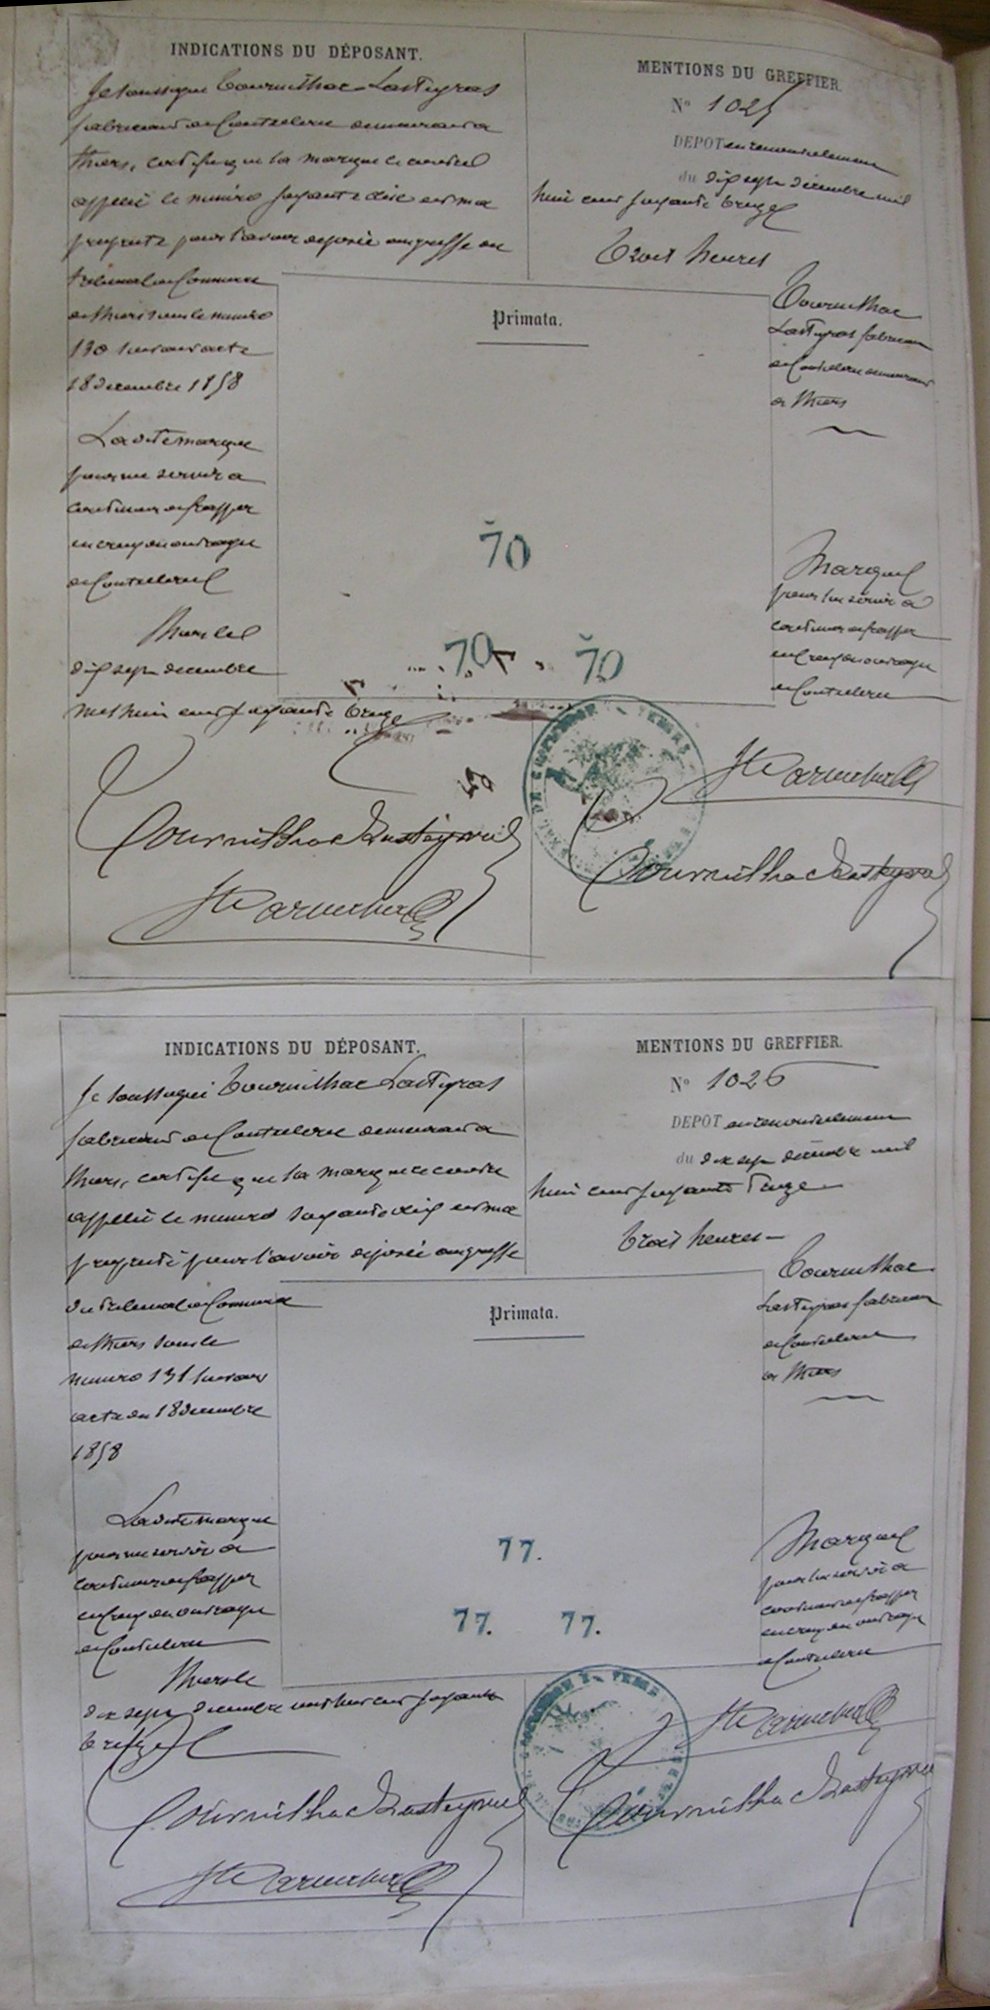 INDICATIONS DU DÉPOSANT.
Je soussigné Tournilhac Lasteyras
fabricant de Coutellerie demeurant a
Thiers, certifie que la marque ci contre
appellée le numéro soixante dix est ma
propriété pour l'avoir déposée au greffe du
tribunal de Commerce
de Thiers sous le numéro
130 suivant acte
18 décembre 1858
La dite marque
pour me servir a
continuer de frapper
en creux mes ouvrages
de Coutellerie
Thiers le
dix sept decembre
mil huit cent soixante treize
Tournilhac Lasteyras
MENTIONS DU GREFFIER.
N° 1025
DEPOT en renouvellement
du dix sept décembre mil
huit cent soixante treize
trois heures
Primata.
Tournilhac
Lasteyras fabricant
de Coutellerie demeurant
a Thiers
Marque
pour lui servir a
continuer de frapper
en creux ses ouvrages
de Coutellerie
70
70 70
Tournilhac Lasteyras
INDICATIONS DU DÉPOSANT.
Je soussigné Tournilhac Lasteyras
fabricant de Coutellerie demeurant a
Thiers, certifie que la marque ci contre
appellée le numéro
propriété pour l'avoir déposée au greffe
du tribunal de Commerce
de Thiers sous le
numéro 131 suivant
acte du 18 décembre
1858
La dite marque
pour me servir a
continuer de frapper
en creux mes ouvrages
de Coutellerie
Thiers le
dix sept décembre mil huit cent soixante
treize
Tournilhac Lasteyras
MENTIONS DU GREFFIER.
N° 1026
DEPOT en renouvellement
du dix sept décembre mil
huit cent soixante treize
trois heures
Primata.
Tournilhac
Lasteyras fabricant
de Coutellerie
a Thiers
Marque
pour lui servir a
continuer de frapper
en creux ses ouvrages
de Coutellerie
77.
77. 77.
Tournilhac Lasteyras